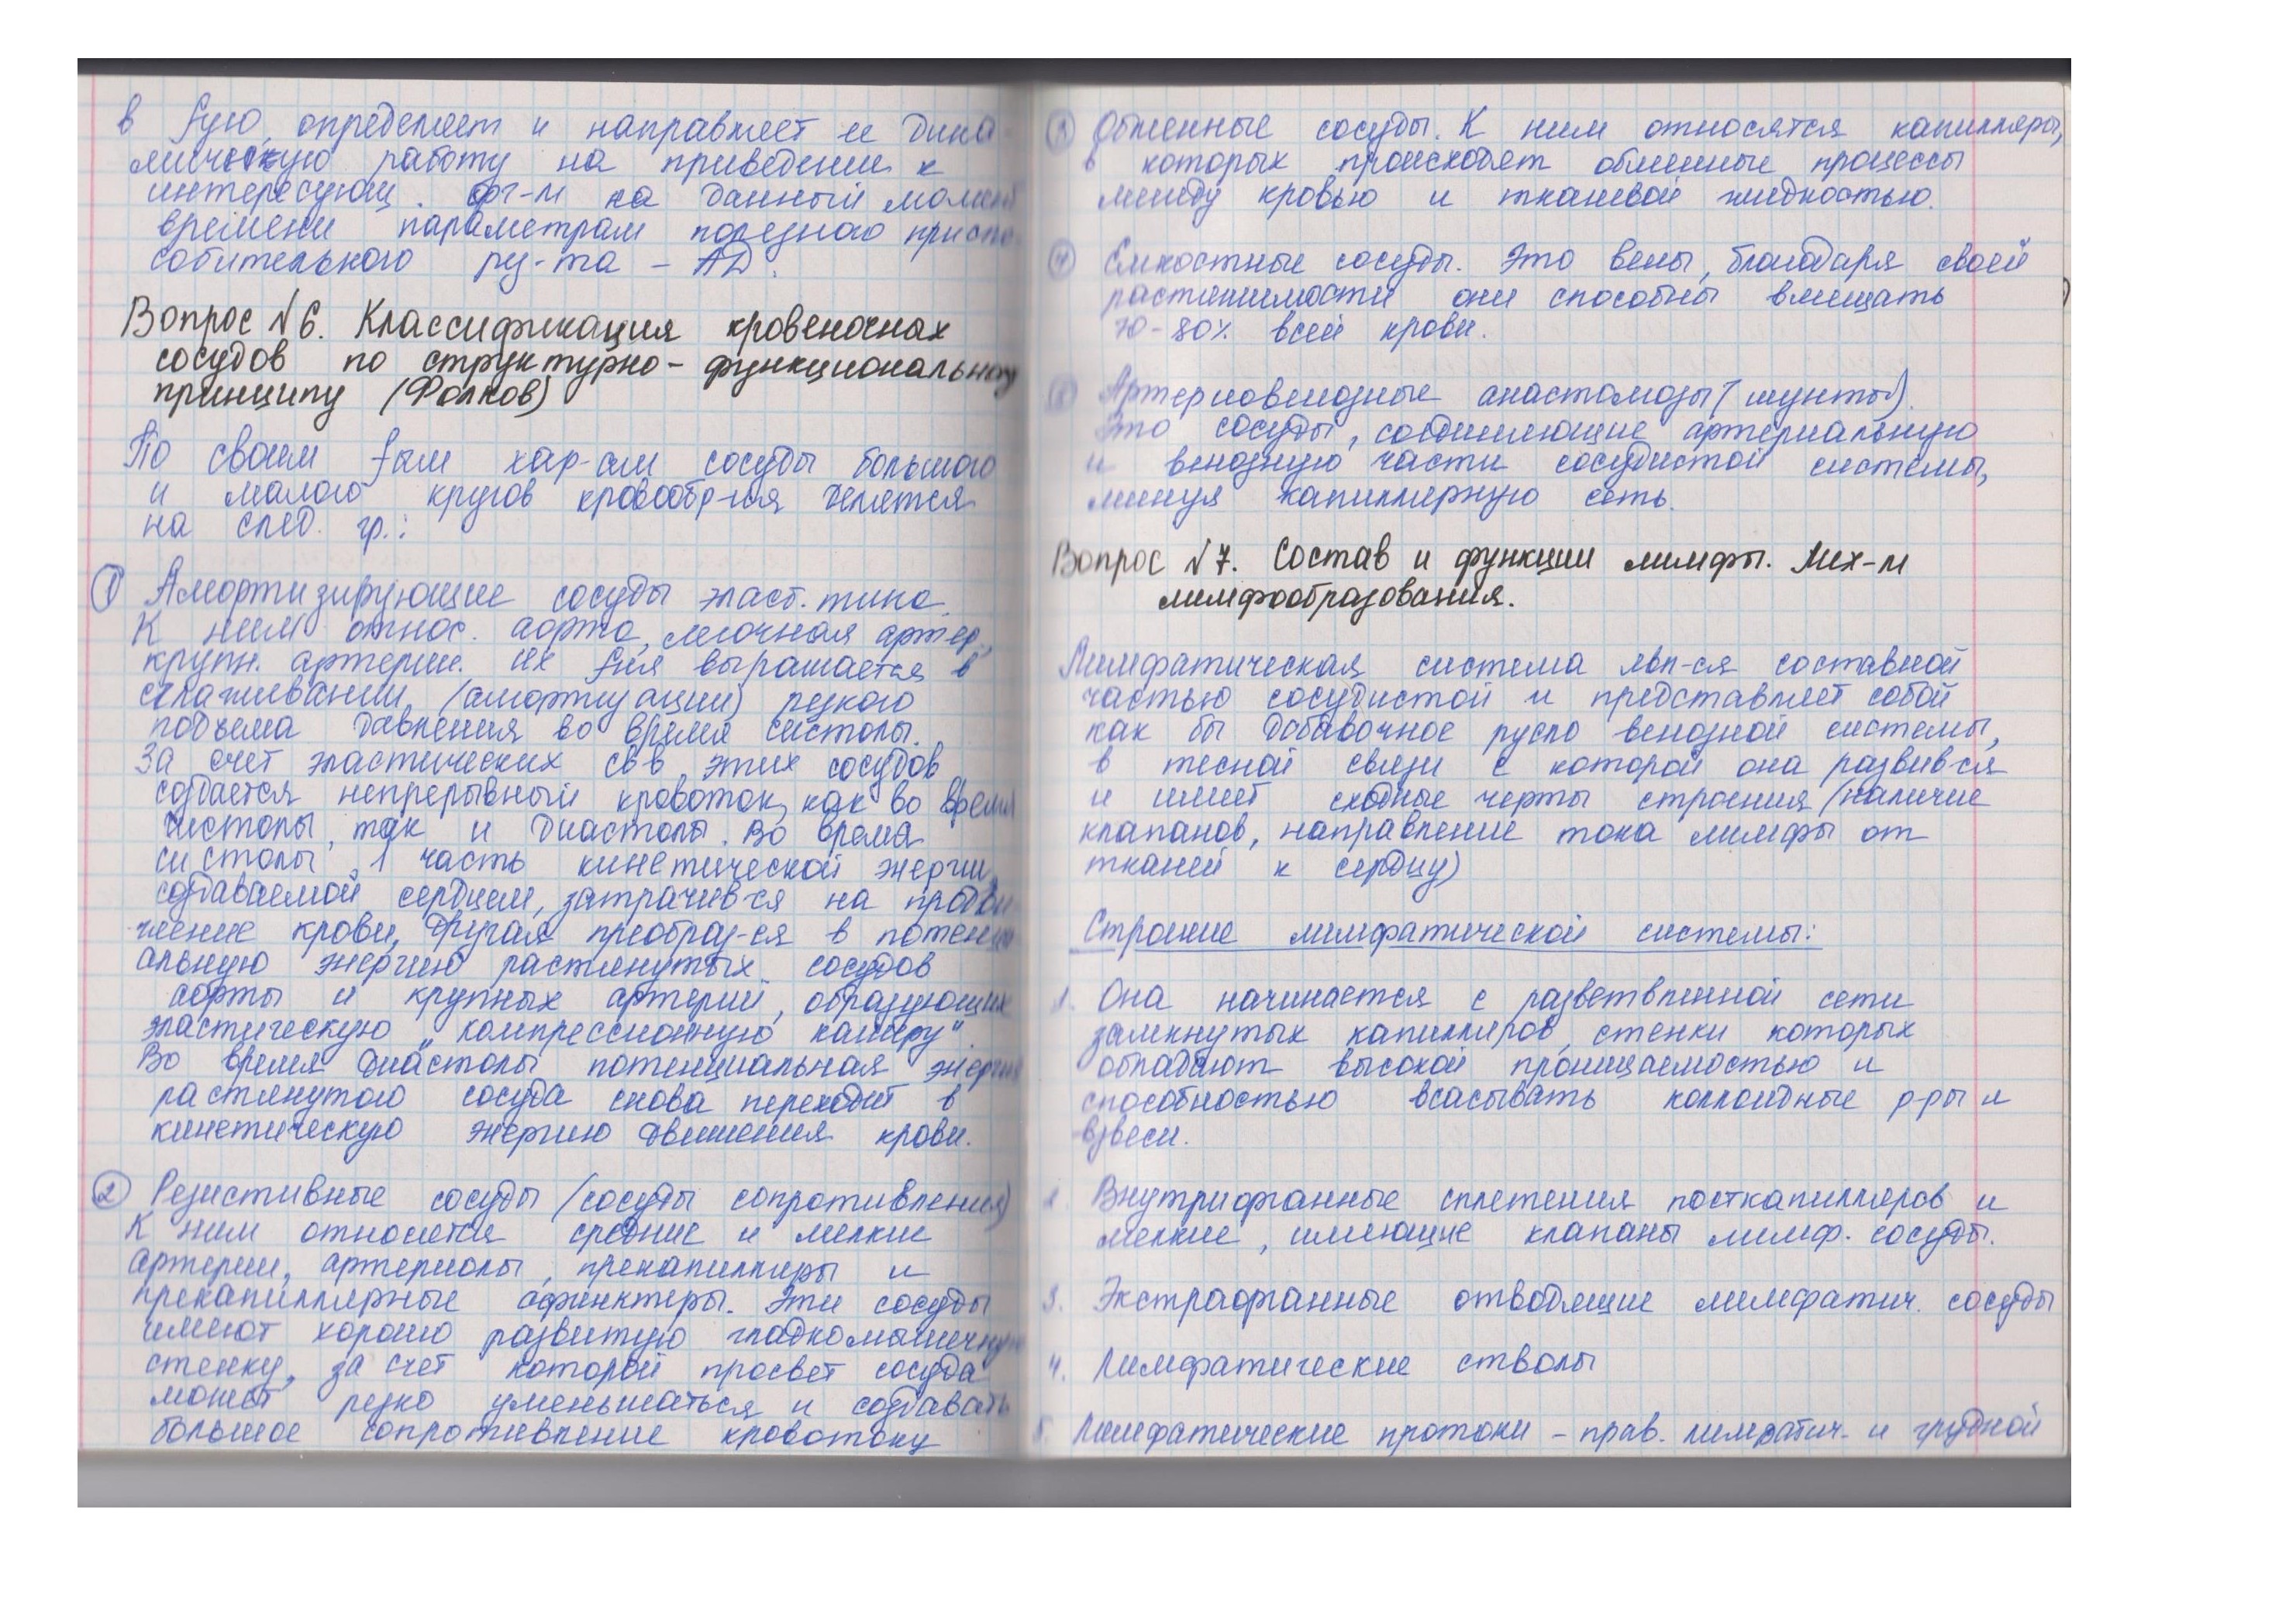 в fую, определяет и направляет ее дина-
мическую работу на приведении к
интересующ. орг-м на данный момент
времени параметрам полезного приспо-
собительного ру-та – АД.
Вопрос №6. Классификация кровеночнах
сосудов по структурно-функциональному
принципу (Фолков)
По своим fым хар-ам сосуды большого
и малого кругов кровообр-ия делятся
на след. гр.:
① Амортизирующие сосуды эласт. типа.
К ним относ. аорта, легочная артер.,
крупн. артерии. Их fия выражается в
сглаживании (амортизации) резкого
подъема давления во время систолы.
За счет эластических св-в этих сосудов
создается непрерывный кровоток, как во время
систолы, так и диастолы. Во время
систолы 1 часть кинетической энергии,
создаваемой сердцем, затрачив-ся на продви-
жение крови, другая преобраз-ся в потенци-
альную энергию растянутых сосудов
аорты и крупных артерий, образующих
эластическую „компрессионную камеру".
Во время диастолы потенциальная энергия
растянутого сосуда снова переходит в
кинетическую энергию движения крови.
② Резистивные сосуды (сосуды сопротивления)
К ним относятся средние и мелкие
артерии, артериолы, прекапилляры и
прекапиллярные сфинктеры. Эти сосуды
имеют хорошо развитую гладкомышечную
стенку, за счет которой просвет сосуда
может резко уменьшаться и создавать
большое сопротивление кровотоку
③ Обменные сосуды. К ним относятся капилляры,
в которых происходят обменные процессы
между кровью и тканевой жидкостью.
④ Емкостные сосуды. Это вены, благодаря своей
растяжимости они способны вмещать
70-80% всей крови.
⑤ Артериовенозные анастомозы (шунты).
Это сосуды, соединяющие артериальную
и венозную части сосудистой системы,
минуя капиллярную сеть.
Вопрос №7. Состав и функции лимфы. Мех-м
лимфообразования.
Лимфатическая система явл-ся составной
частью сосудистой и представляет собой
как бы добавочное русло венозной системы,
в тесной связи с которой она развив-ся
и имеет сходные черты строения (наличие
клапанов, направление тока лимфы от
тканей к сердцу)
Строение лимфатической системы:
1. Она начинается с разветвленной сети
замкнутых капилляров, стенки которых
обладают высокой проницаемостью и
способностью всасывать коллоидные р-ры и
взвеси.
2. Внутриорганные сплетения посткапилляров и
мелкие, имеющие клапаны лимф. сосуды.
3. Экстраорганные отводящие лимфатич. сосуды
4. Лимфатические стволы
5. Лимфатические протоки – прав. лимфатич. и грудной